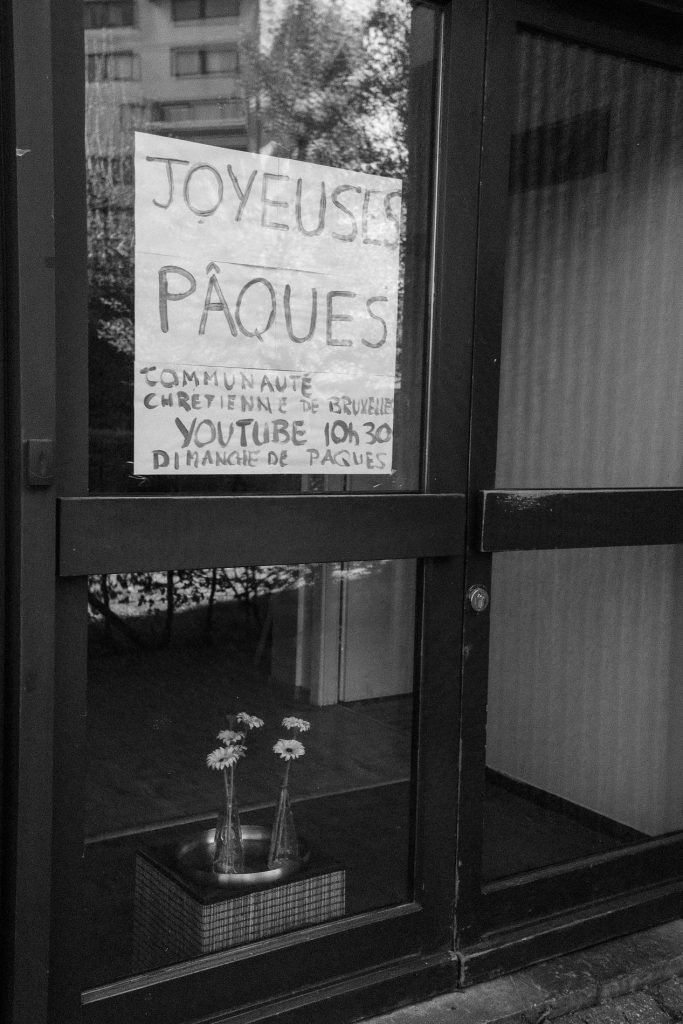 JOYEUSES
PÂQUES
COMMUNAUTÉ
CHRETIENNE DE BRUXELLES
YOUTUBE 10h30
DIMANCHE DE PAQUES